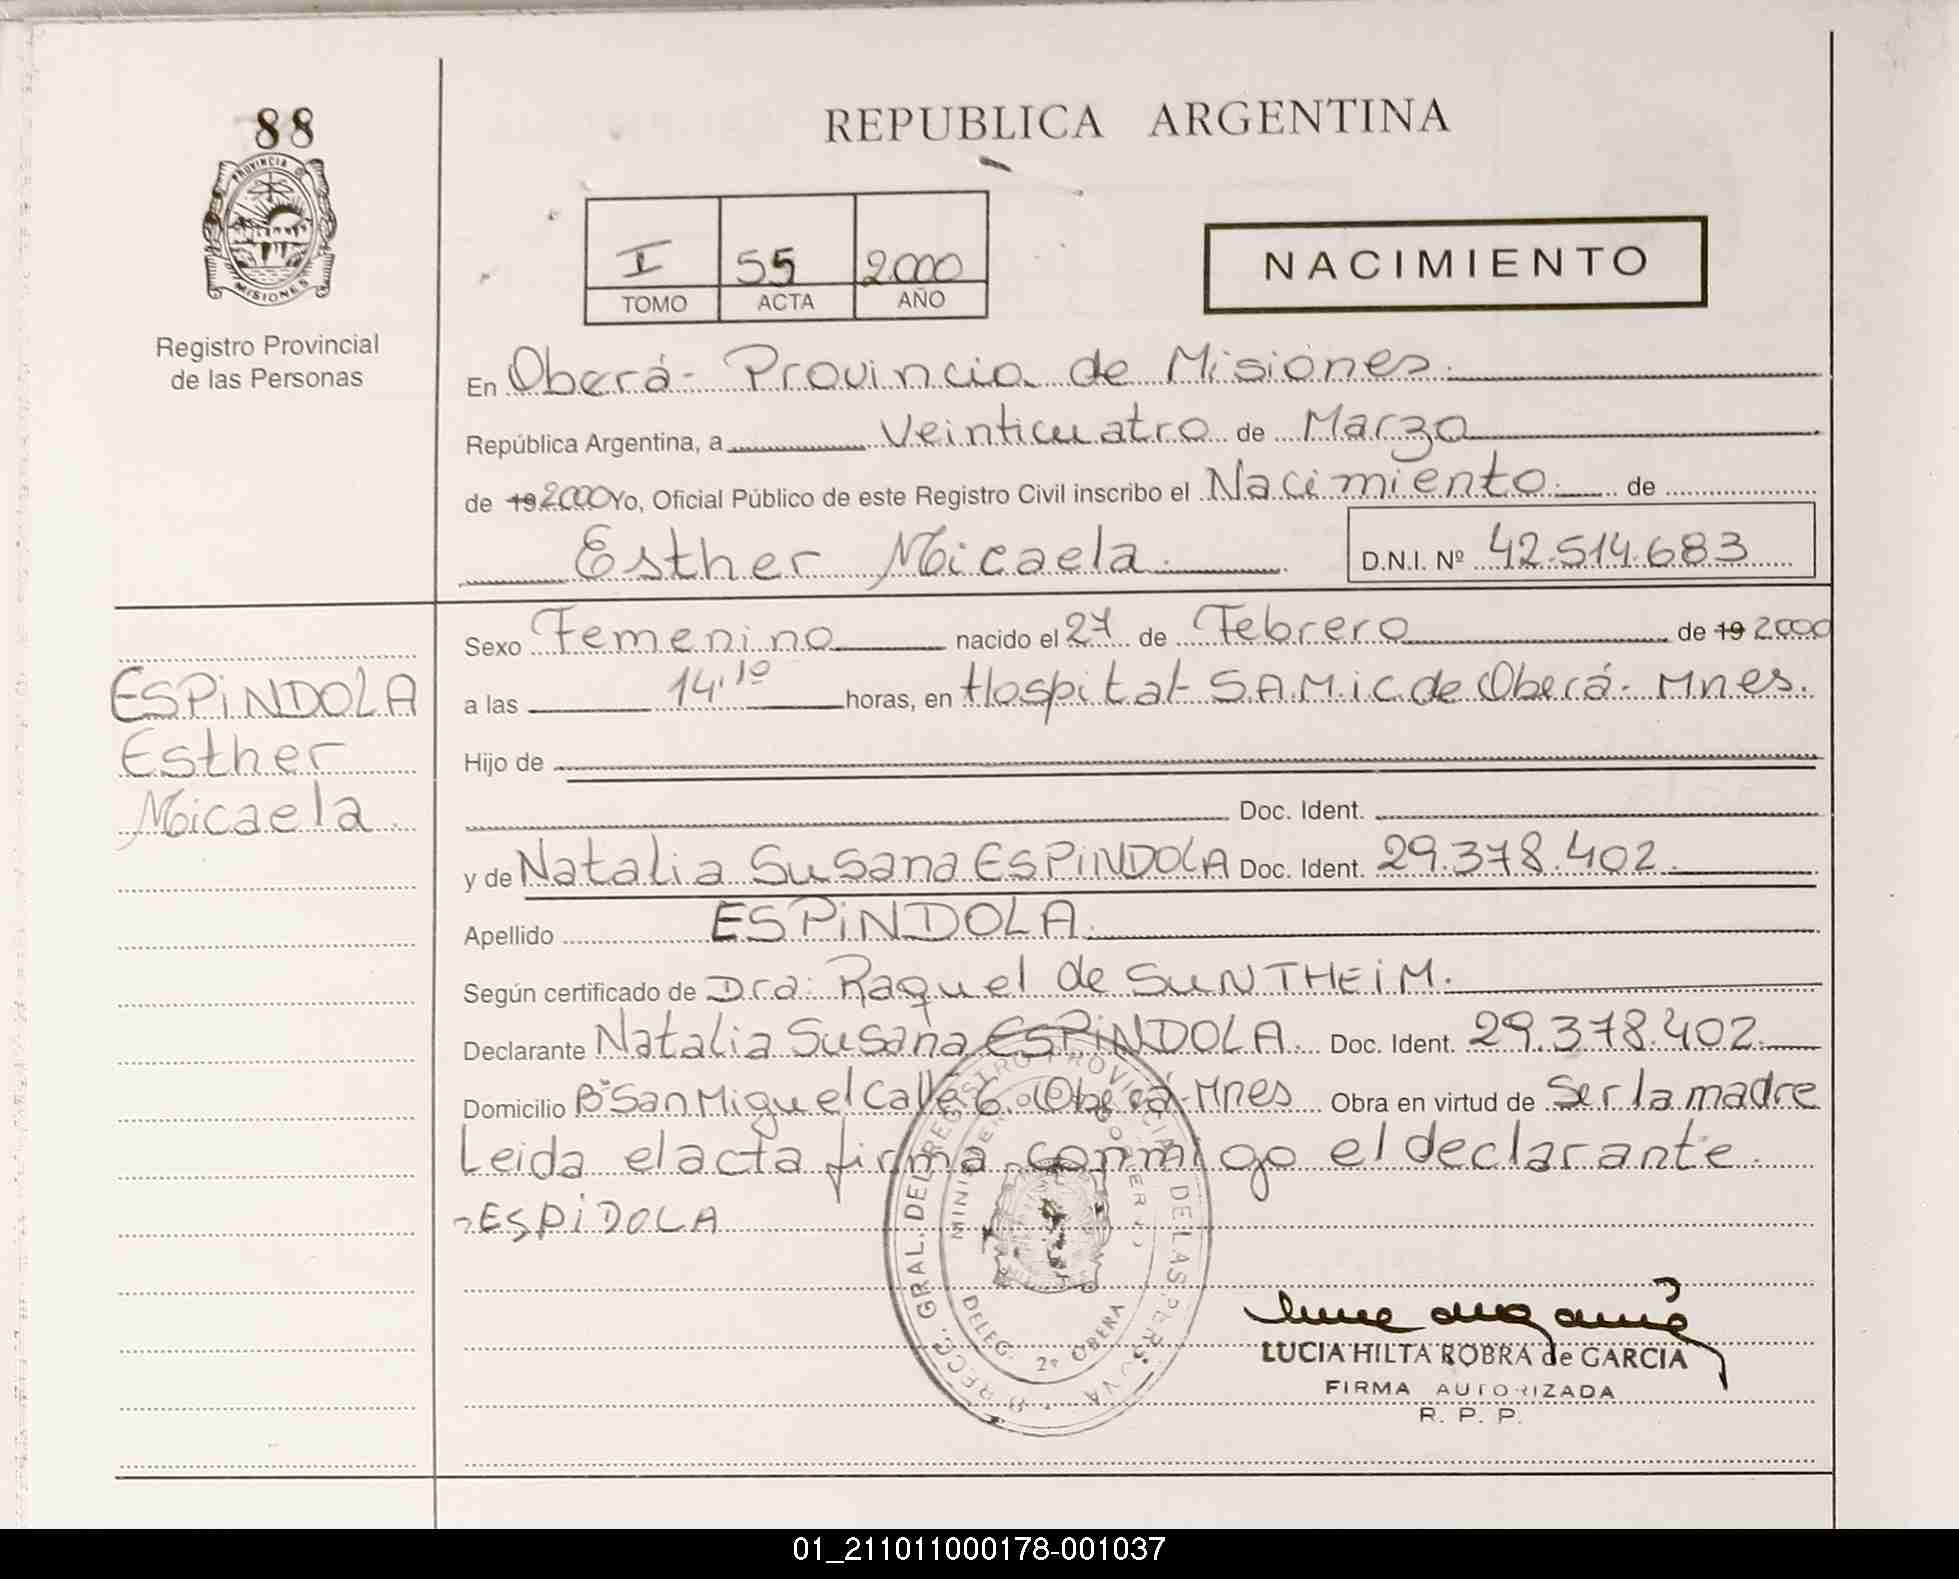 88
PROVINCIA DE
MISIONES
Registro Provincial
de las Personas
REPUBLICA ARGENTINA
I 55 2000
TOMO ACTA AÑO
NACIMIENTO
En Oberá - Provincia de Misiones.
República Argentina, a Veinticuatro de Marzo
de 19 2000 Yo, Oficial Público de este Registro Civil inscribo el Nacimiento. de
Esther Micaela. D.N.I. Nº 42.514.683
Sexo Femenino nacido el 27 de Febrero de 19 2000
a las 14.10 horas, en Hospital S.A.M.i.C. de Oberá - Mnes.
Hijo de
Doc. Ident.
y de Natalia Susana ESPiNDOLA Doc. Ident. 29.378.402.
Apellido ESPiNDOLA.
Según certificado de Dra: Raquel de SuNTHEiM.
Declarante Natalia Susana ESPiNDOLA. Doc. Ident. 29.378.402.
Domicilio Bº San Miguel Calle 6. Oberá - Mnes Obra en virtud de Ser la madre
Leida el acta firma conmigo el declarante.
ESPiDOLA
ESPiNDOLA
Esther
Micaela.
GRAL. DEL REGISTRO PROVINCIAL DE LAS PER
DELEG. 2ª OBERA
LUCIA HILTA ROBRA de GARCIA
FIRMA AUTORIZADA
R. P. P.
01_211011000178-001037